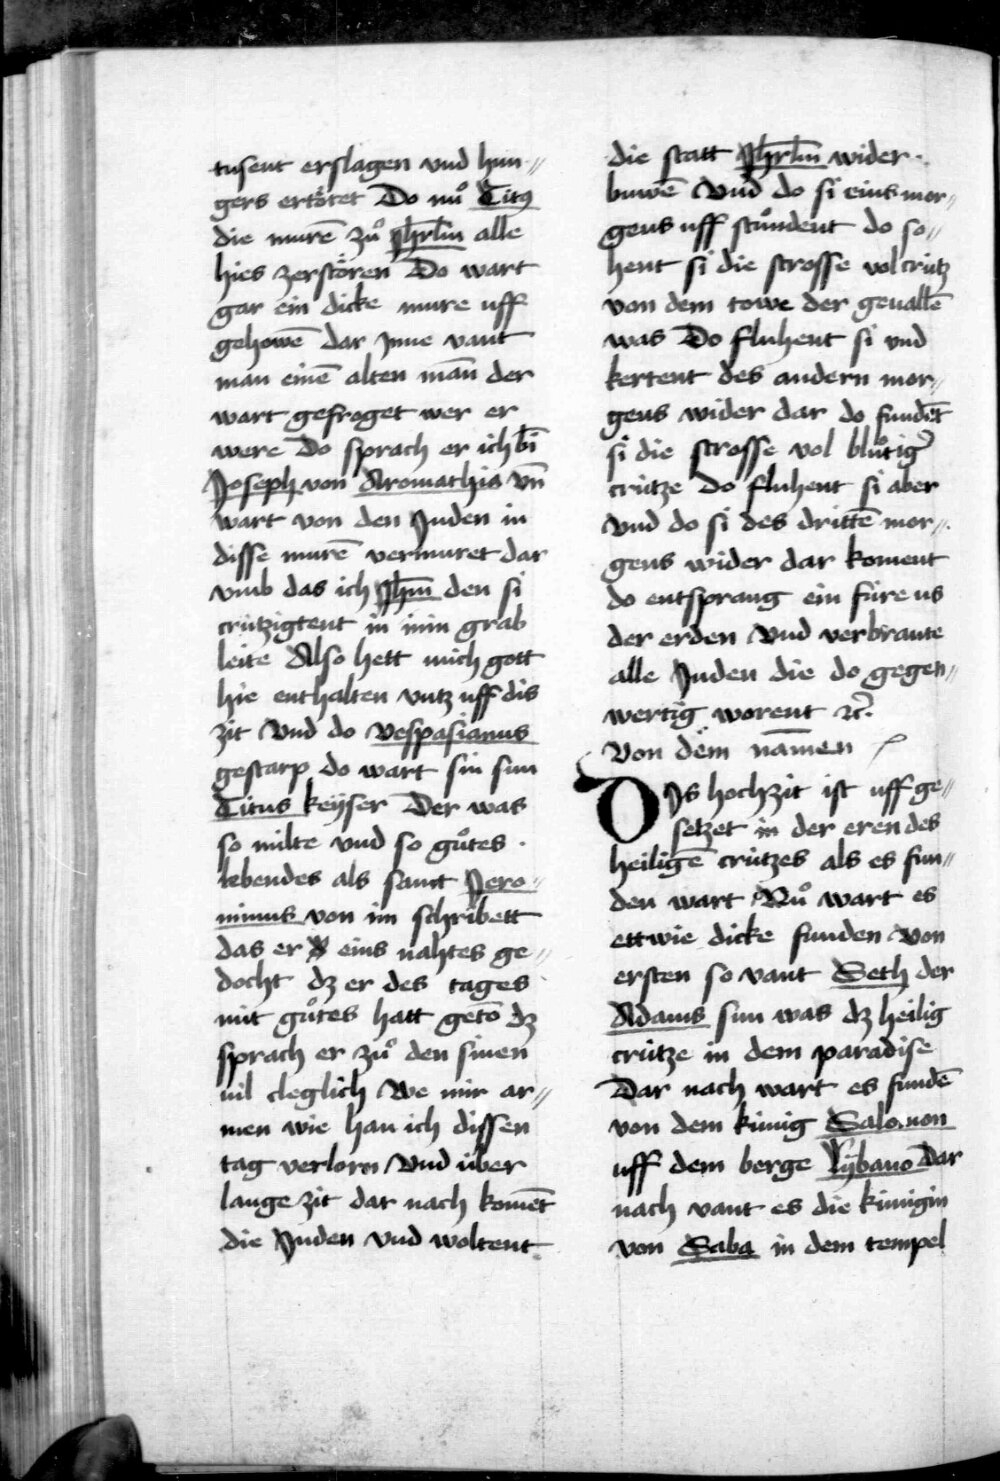 tusent erslagen vnd hun⸗
gers ertötet Do nuͦ Titꝰ
die murē zuͦ Jhrlm̄ alle
hies zerstören Do wart
gar ein dicke mure uff
gehowē dar Jnne vant
man einē alten man̄ der
wart gefroget wer er
were Do sprach er ich bī
Joseph von Aromathia vn̄
wart von den Juden in
disse murē vermuret dar
vmb das ich Jhm̄ den si
crützigtent in mim grab
leite Also hett mich gott
hie enthalten vntz uff dis
zit Vnd do Vespasianus
gestarp do wart sin sun
Titus keyser Der was
so milte vnd so guͦtes
lebendes als sant Jero⸗
nimus von im schribett
das er eins nahtes ge⸗
docht dz er des tages
nit guͦtes hatt getō dz
sprach er zuͦ den sinen
vil cleglich We mir ar⸗
men wie han ich dissen
tag verlorn Vnd über
lange zit dar nach komēt
die Juden vnd woltent
die statt Jhrlm̄ wider
buwē Vnd do si eins mor⸗
gens uff stuͦndent do so⸗
hent si die strosse vol crütz
von dem towe der geuallē
was Do fluhent si vnd
kertent des andern mor⸗
gens wider dar do fundēt
si die strosse vol bluͦtigʾ
crütze Do fluhent si aber
Vnd do si des drittē mor⸗
gens wider dar koment
do entsprang ein füre us
der erden Vnd verbrante
alle Juden die do gegen⸗
wertig worent ꝛc̄.
Von dem namen
DJs hochzit ist uff ge⸗
setzet in der eren des
heiligē crützes als es fun⸗
den wart Nuͦ wart es
ettwie dicke funden Von
ersten so vant Seth der
Adams sun was dz heilig
crütze in dem paradise
Dar nach wart es fundē
von dem künig Salomon
uff dem berge Lybano Dar
nach vant es die künigin
von Saba in dem tempel